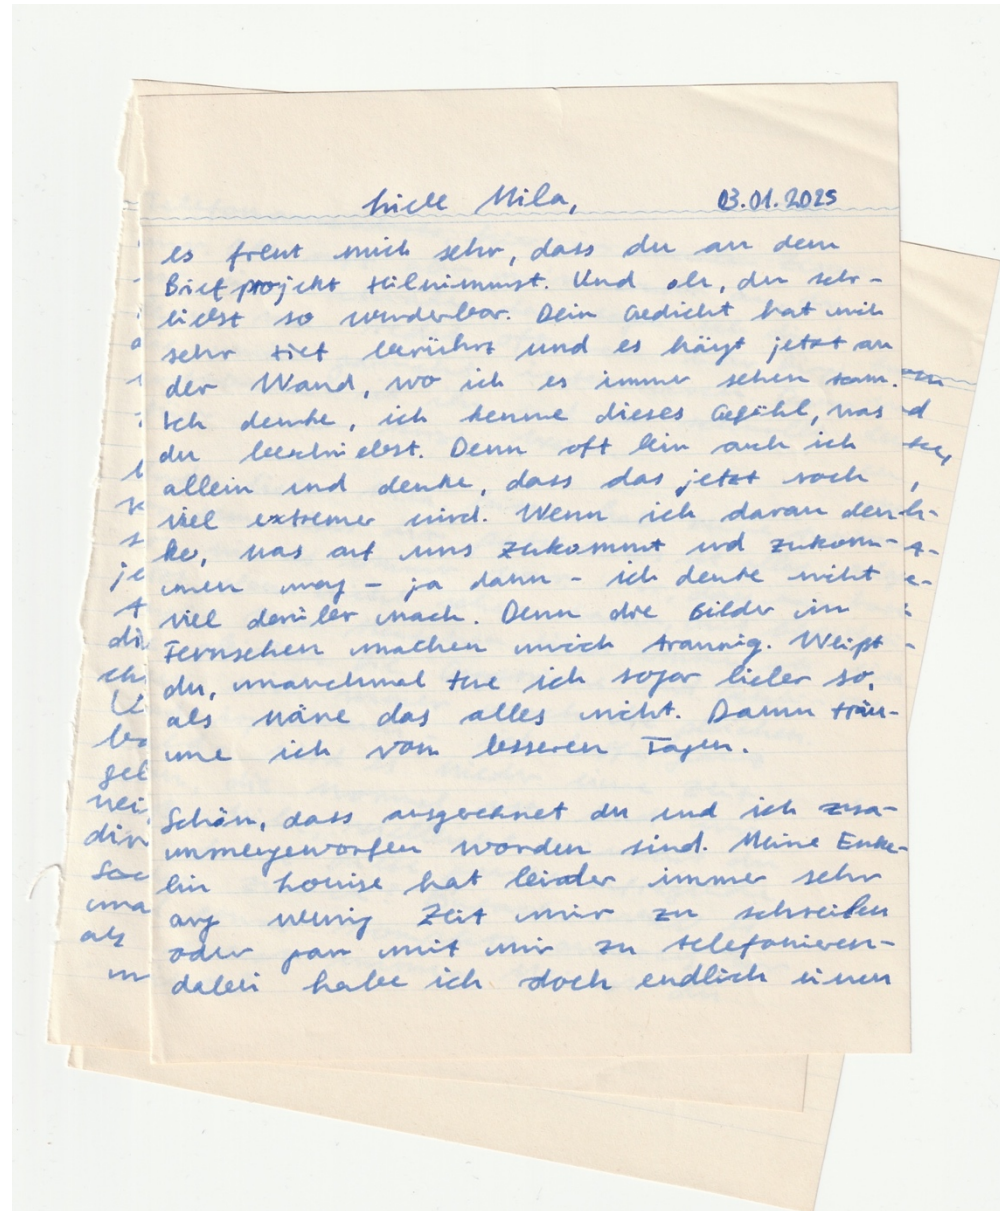 Liebe Mila, 03.01.2025
es freut mich sehr, dass du an dem
Briefprojekt teilnimmst. Und oh, du schr-
iebst so wunderbar. Dein Gedicht hat mich
sehr tief berührt und es hängt jetzt an
der Wand, wo ich es immer sehen kann.
Ich denke, ich kenne dieses Gefühl, was
du beschriebst. Denn oft bin auch ich
allein und denke, dass das jetzt noch
viel extremer wird. Wenn ich daran den-
ke, was auf uns zukommt und zukom-
men mag – ja dann – ich denke nicht
viel darüber nach. Denn die Bilder im
Fernsehen machen mich traurig. Weißt
du, manchmal tue ich sogar lieber so,
als wäre das alles nicht. Dann träu-
me ich von besseren Tagen.
Schön, dass ausgerechnet du und ich zusa-
mmengeworfen worden sind. Meine Enke-
lin Louise hat leider immer sehr
arg wenig Zeit mir zu schreiben
oder gar mit mir zu telefonieren-
dabei habe ich doch endlich einen